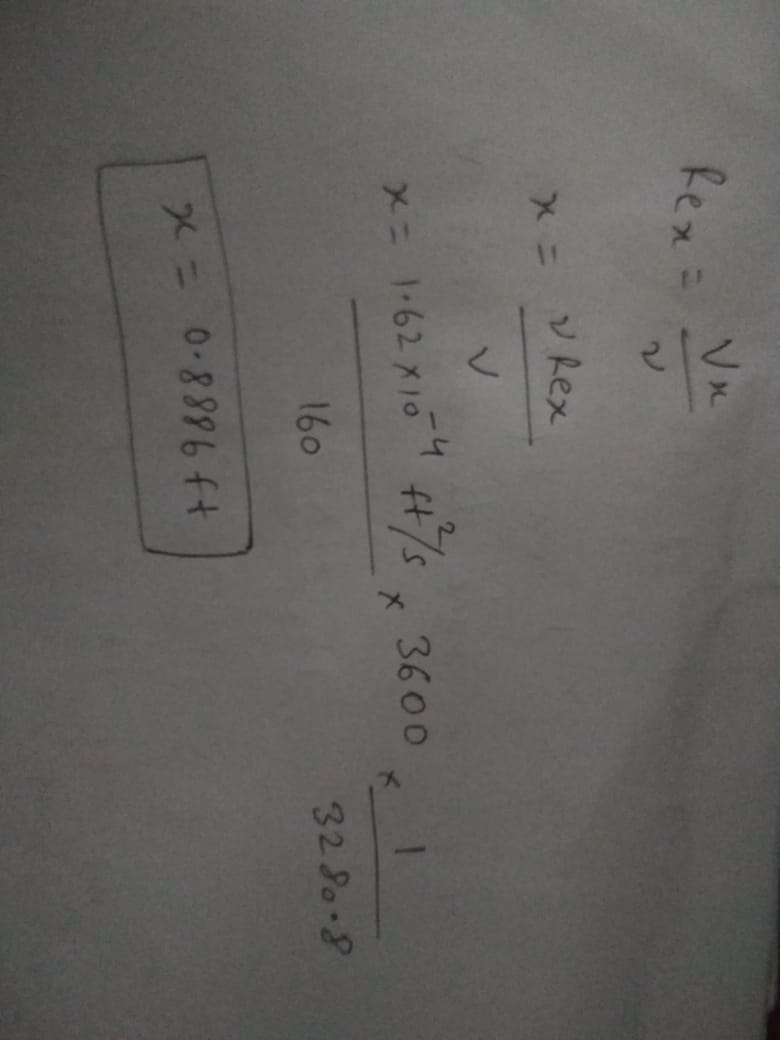 Rex = Vx / ν
x = ν Rex / V
x = 1.62 × 10⁻⁴ ft²/s / 160 × 3600 × 1 / 3280.8
x = 0.8886 ft